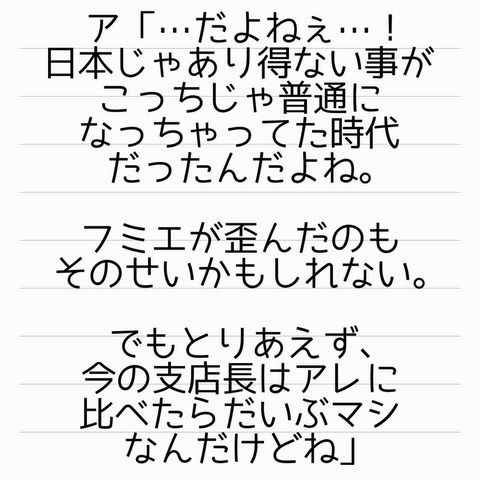 ア「…だよねぇ…！
日本じゃあり得ない事が
こっちじゃ普通に
なっちゃってた時代
だったんだよね。
フミエが歪んだのも
そのせいかもしれない。
でもとりあえず、
今の支店長はアレに
比べたらだいぶマシ
なんだけどね」